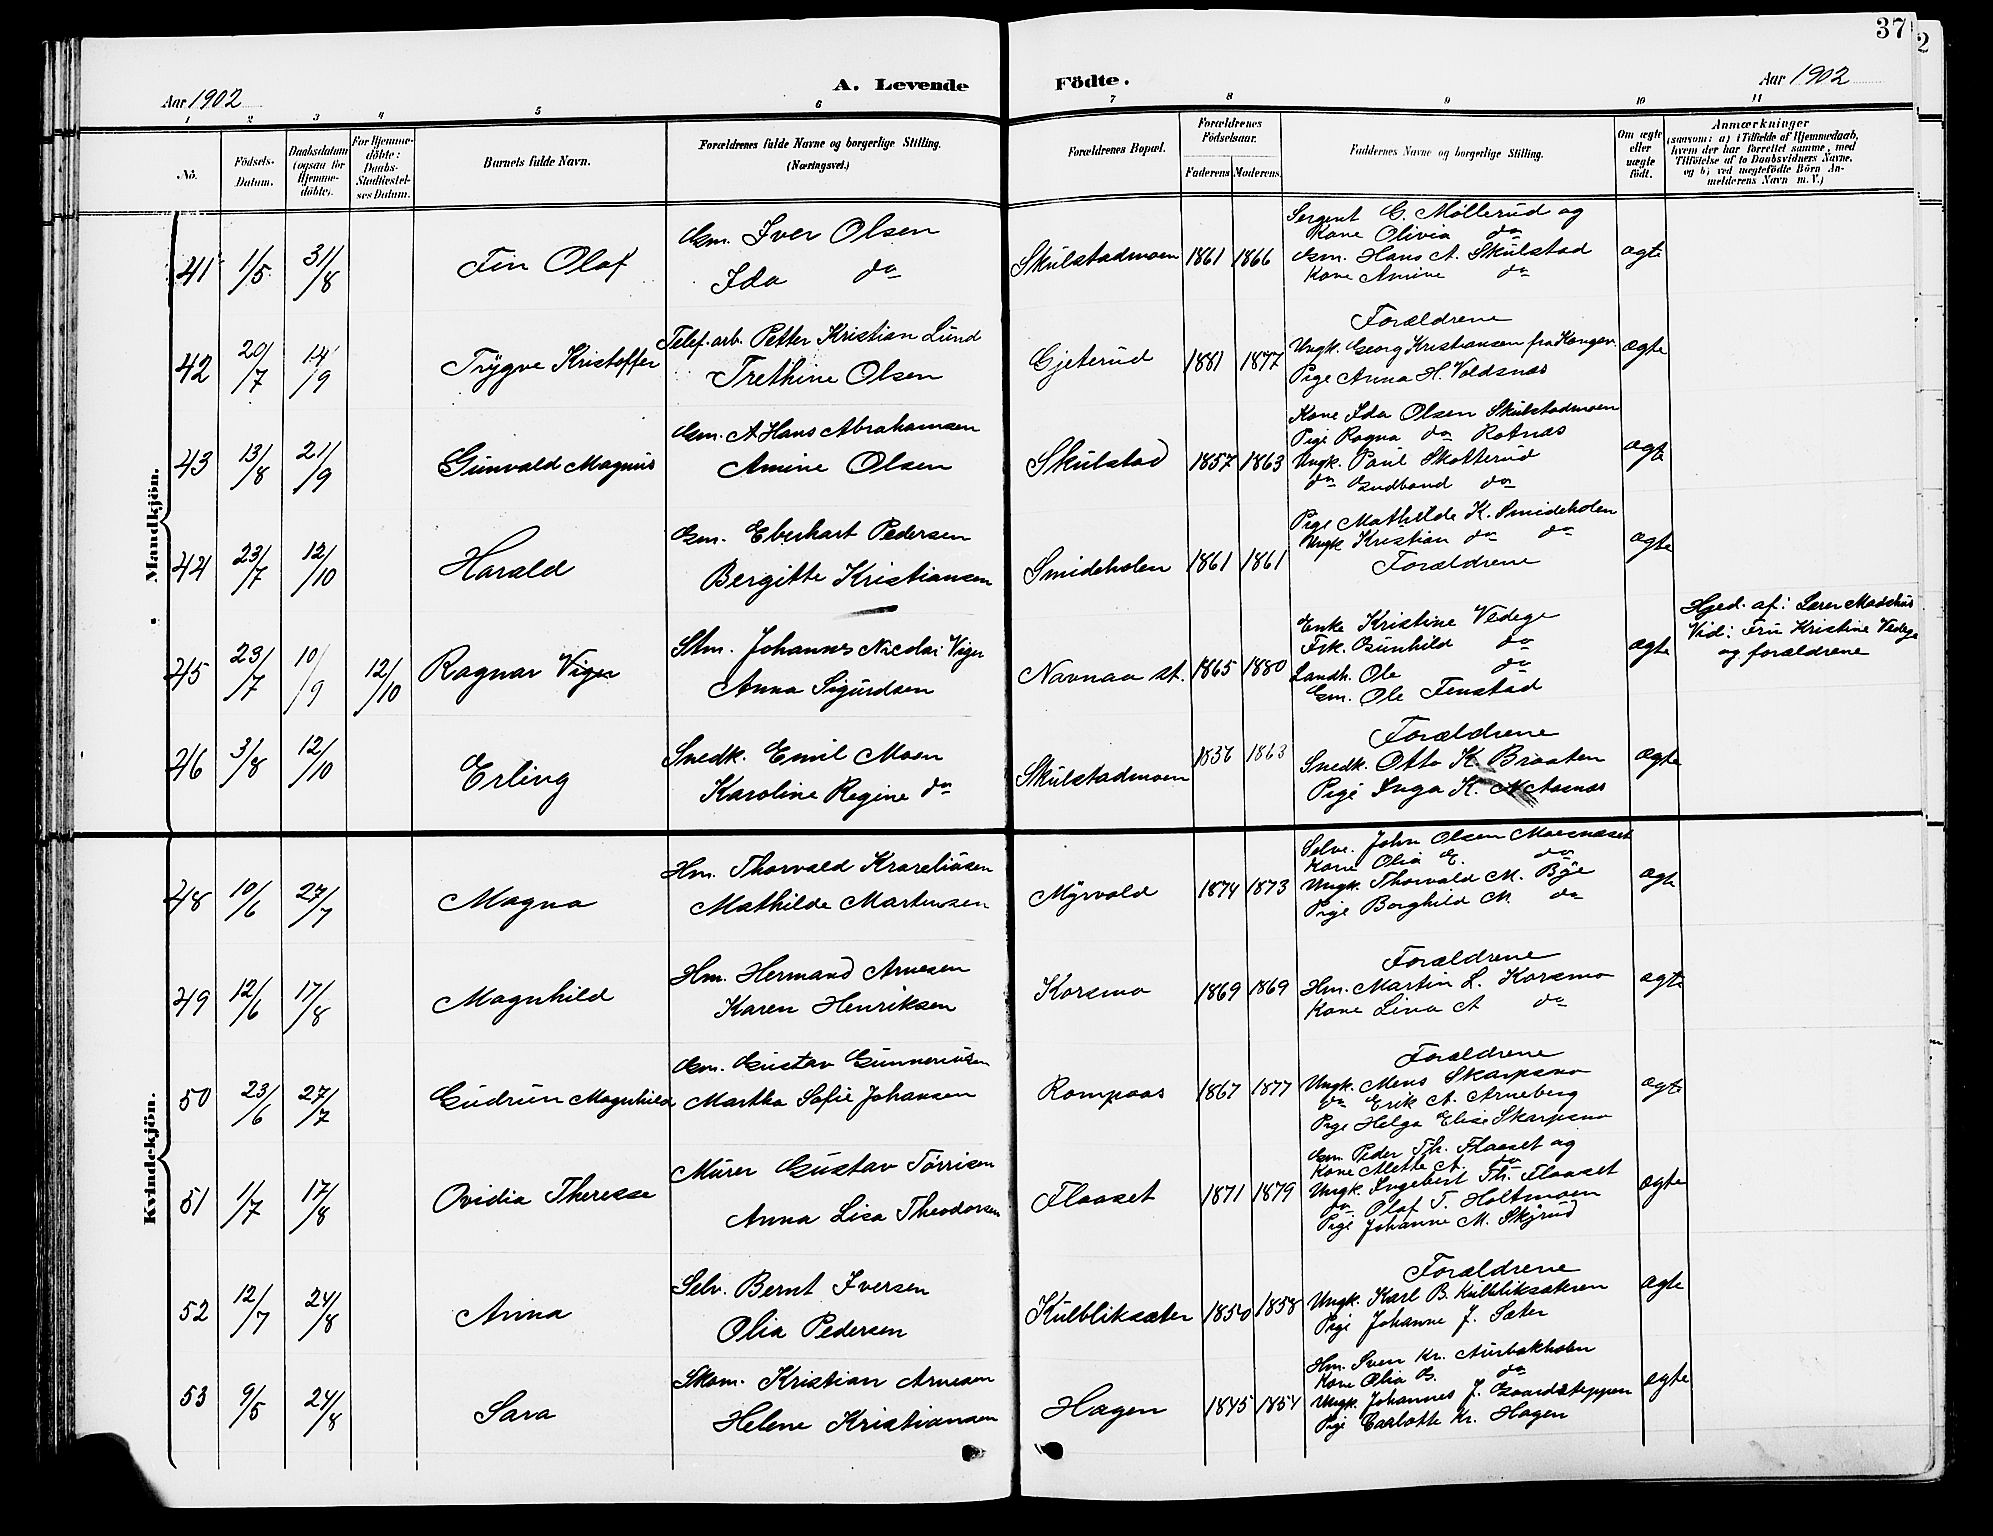 37
2
Aar 1902
A. Levende
Födte.
Aar 1902
1 2 3 4 5 6 7 8 9 10 11
No.
Födsels-Datum.
Daabsdatum (ogsaa for Hjemmedöbte).
For Hjemmedöbte: Daabs-Stadfæstelses Datum.
Barnets fulde Navn.
Forældrenes fulde Navne og borgerlige Stilling. (Næringsvei.)
Forældrenes Bopæl.
Forældrenes Födselsaar.
Faderens. Moderens.
Faddernes Navne og borgerlige Stilling.
Om ægte eller uægte födt.
Anmærkninger
(saasom: a) i Tilfælde af Hjemmedaab, hvem der har forrettet samme, med Tilföielse af to Daabsvidners Navne, og b) ved uægtefödte Börn Anmelderens Navn m. V.)
Mandkjön.
41 1/5 31/8 Fin Olaf
Gm. Iver Olsen
Ida do
Skulstadmoen 1861 1866
Sergent G. Møllerud og
Kone Olivia do
Gm. Hans A. Skulstad
Kone Amine do
ægte
42 20/7 14/9 Trygve Kristoffer
Telef.arb. Petter Kristian Lund
Trethine Olsen
Gjeterud 1881 1877
Forældrene
Ungk. Georg Kristiansen fra Kongsv.
Pige Anna H. Voldsnæs
ægte
43 13/8 21/9 Gunvald Magnus
Gm. A Hans Abrahamsen
Amine Olsen
Skulstad 1857 1863
Kone Ida Olsen Skulstadmoen
Pige Ragna do Rotnæs
Ungk. Paul Skotterud
do Gudbrand do
ægte
44 23/7 12/10 Harald
Gm. Eberhart Pedersen
Bergitte Kristiansen
Smideholen 1861 1861
Pige Mathilde K. Smideholen
Ungk Kristian do do
Forældrene
ægte
45 23/7 10/9 12/10 Ragnar Viger
Stm. Johannes Nicolai Viger
Anna Sigurdsen
Navnaa st. 1865 1880
Enke Kristine Vedege
Frk. Gunhild do
Landh. Ole do
Gm. Ole Fenstad
ægte
Hjed. af: Lærer Madshus
Vid: Fru Kristine Vedege
og forældrene
46 3/8 12/10 Erling
Snedk. Emil Moen
Karoline Regine do
Skulstadmoen 1856 1863
Forældrene
Snedk. Otto K. Braaten
Pige Inga K.
ægte
Kvindekjön.
48 10/6 27/7 Magna
Hm. Thorvald Kroreliusen
Mathilde Martinsen
Myrvold 1874 1873
Selve. John Olsen Moesnæset
Kone Olia E. do
Ungk. Thorvald M. Bye
Pige Borghild M. do
ægte
49 12/6 17/8 Magnhild
Hm. Hermand Arnesen
Karen Henriksen
Korsmo 1869 1869
Forældrene
Hm. Martin L. Korsmo
Kone Lina A do
ægte
50 23/6 27/7 Gudrun Magnhild
Gm. Gustav Gunneriusen
Martha Sofie Johansen
Rompaas 1867 1877
Forældrene
Ungk. Mens Skarpsno
do Erik A. Arneberg
Pige Helga Elise Skarpsno
ægte
51 1/7 17/8 Ovidia Theresse
Murer Gustav Tørrisen
Anna Lisa Theodorsen
Flaaset 1871 1879
Gm. Peder Th. Flaaset og
Kone Alette A. do
Ungk. Ingebert Th. Flaaset
do Olaf T. Holtmoen
Pige Johanne M. Skjrud
ægte
52 12/7 24/8 Anna
Selv. Bernt Iversen
Olia Pedersen
Kulbliksæter 1850 1858
Forældrene
Ungk. Karl B. Kulbliksæteren
Pige Johanne J. Sæter
ægte
53 9/5 24/8 Sara
Skom. Kristian Arnesen
Helene Kristiansen
Hagen 1845 1854
Hm. Sven Kr. Aurbakholen
Kone Olia B. do
Ungk. Johannes J. Gaardsteppen
Pige Carlotte Kr. Hagen
ægte